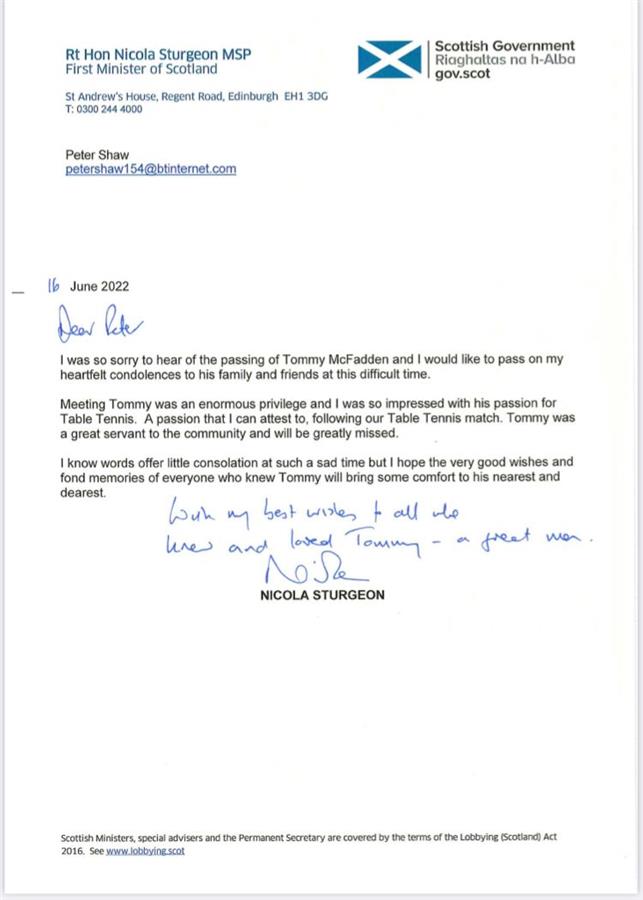 Rt Hon Nicola Sturgeon MSP
First Minister of Scotland
St Andrew's House, Regent Road, Edinburgh EH1 3DG
T: 0300 244 4000
Scottish Government
Riaghaltas na h-Alba
gov.scot
Peter Shaw
petershaw154@btinternet.com
16 June 2022
Dear Peter
I was so sorry to hear of the passing of Tommy McFadden and I would like to pass on my
heartfelt condolences to his family and friends at this difficult time.
Meeting Tommy was an enormous privilege and I was so impressed with his passion for
Table Tennis. A passion that I can attest to, following our Table Tennis match. Tommy was
a great servant to the community and will be greatly missed.
I know words offer little consolation at such a sad time but I hope the very good wishes and
fond memories of everyone who knew Tommy will bring some comfort to his nearest and
dearest.
With my best wishes to all who
knew and loved Tommy - a great man.
NICOLA STURGEON
Scottish Ministers, special advisers and the Permanent Secretary are covered by the terms of the Lobbying (Scotland) Act
2016. See www.lobbying.scot